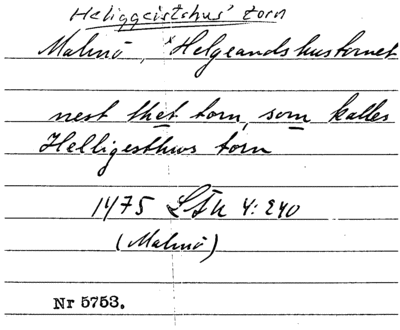 Heliggeistshus' torn
Malmö, *Helgeandshustornet
nest thet torn, som kalles
Helligesthws torn
1475 LÅU 4:240
(Malmö)
Nr 5753.